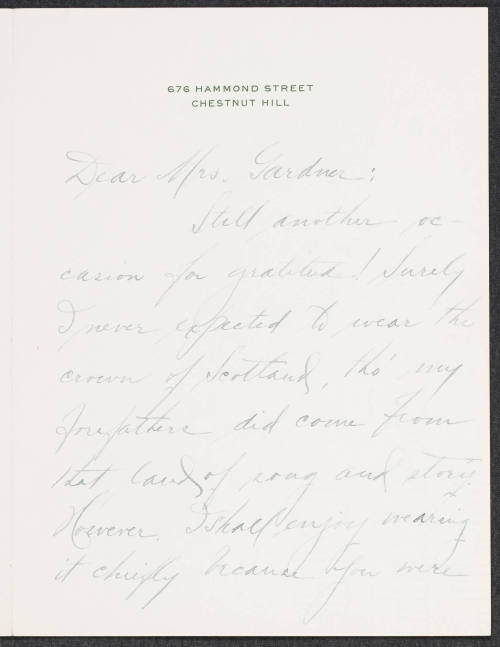 676 HAMMOND STREET
CHESTNUT HILL
Dear Mrs. Gardner:
Still another oc-
casion for gratitud! Surely
I never expected to wear the
crown of Scotland, tho' my
forefathers did come from
that land of song and story.
However, I shall enjoy wearing
it chiefly because you were